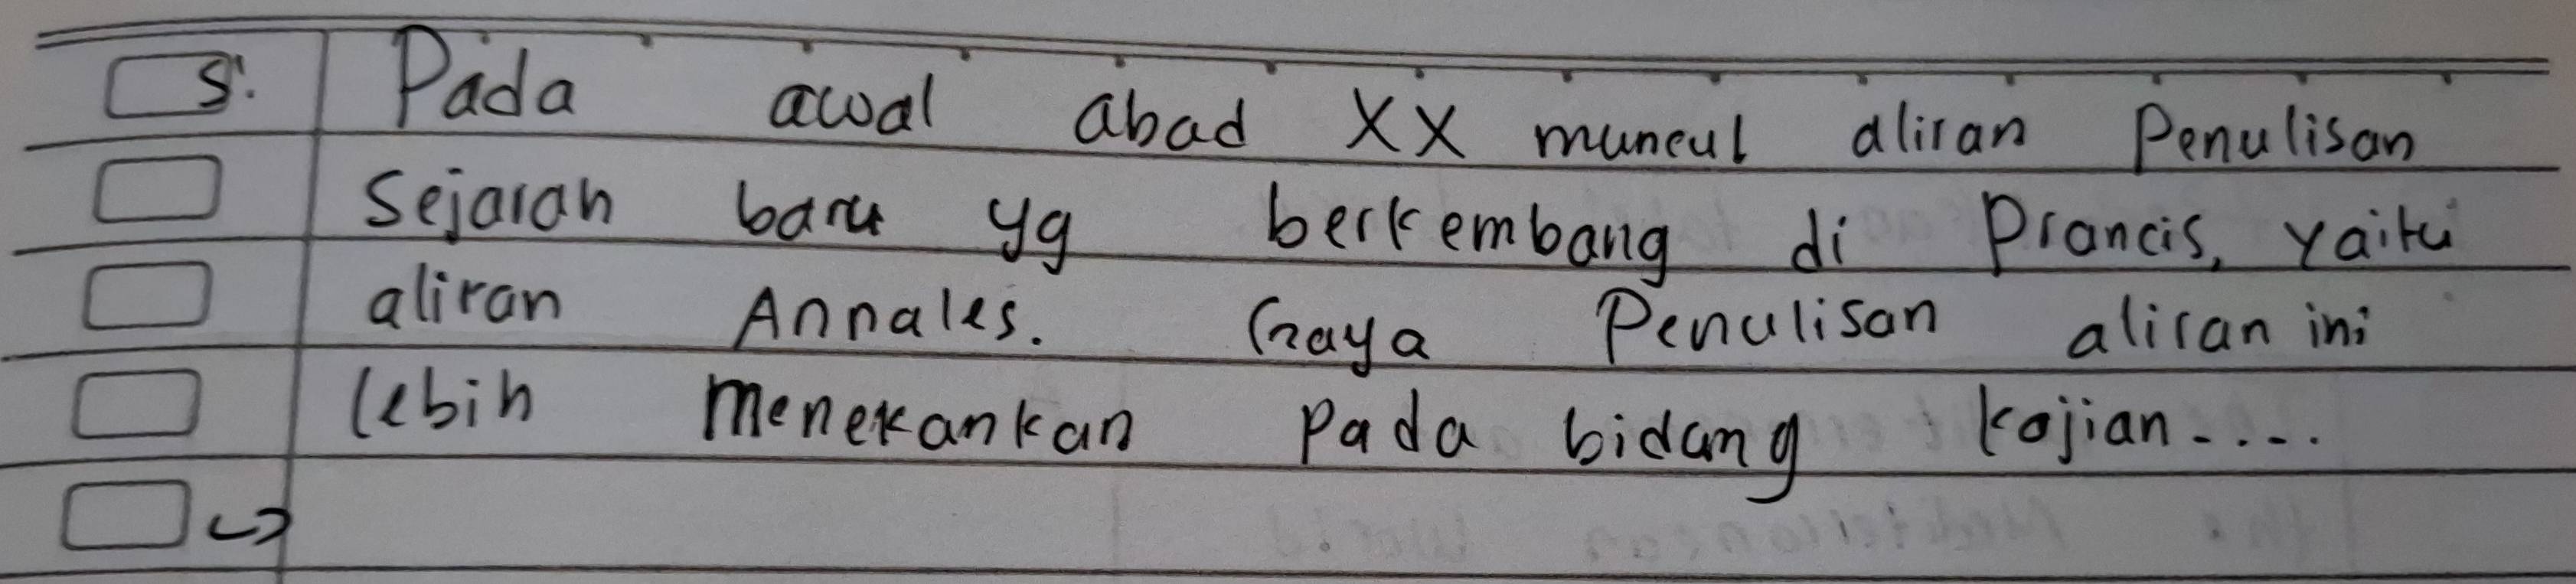 5. Pada awal abad XX muncul aliran Penulisan
Sejarah baru yg berkembang di Prancis, yaitu
aliran Annales. Gaya Penulisan aliran ini
lebih menekankan pada bidang kajian....